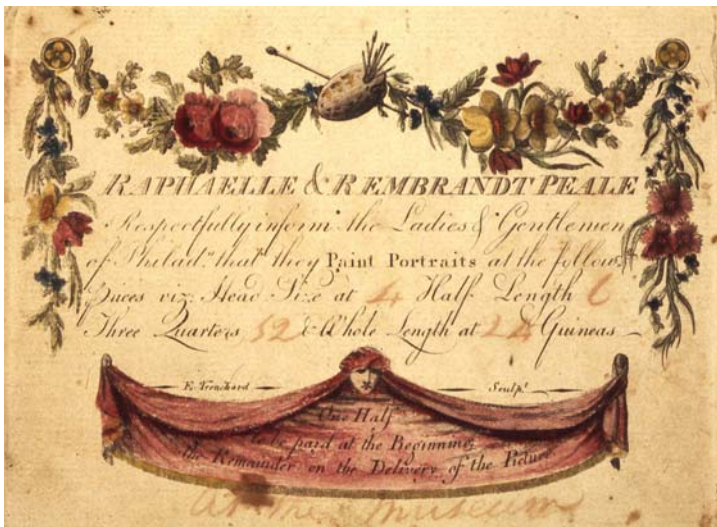 RAPHAELLE & REMBRANDT PEALE
Respectfully inform the Ladies & Gentlemen
of Philad.ª that they Paint Portraits at the follow.ᵍ
Prices viz. Head Size at 4 Half Length 6
Three Quarters 12 & Whole Length at 24 Guineas
E. Trenchard Sculpᵗ
One Half
to be paid at the Beginning,
the Remainder on the Delivery of the Picture
At the Museum